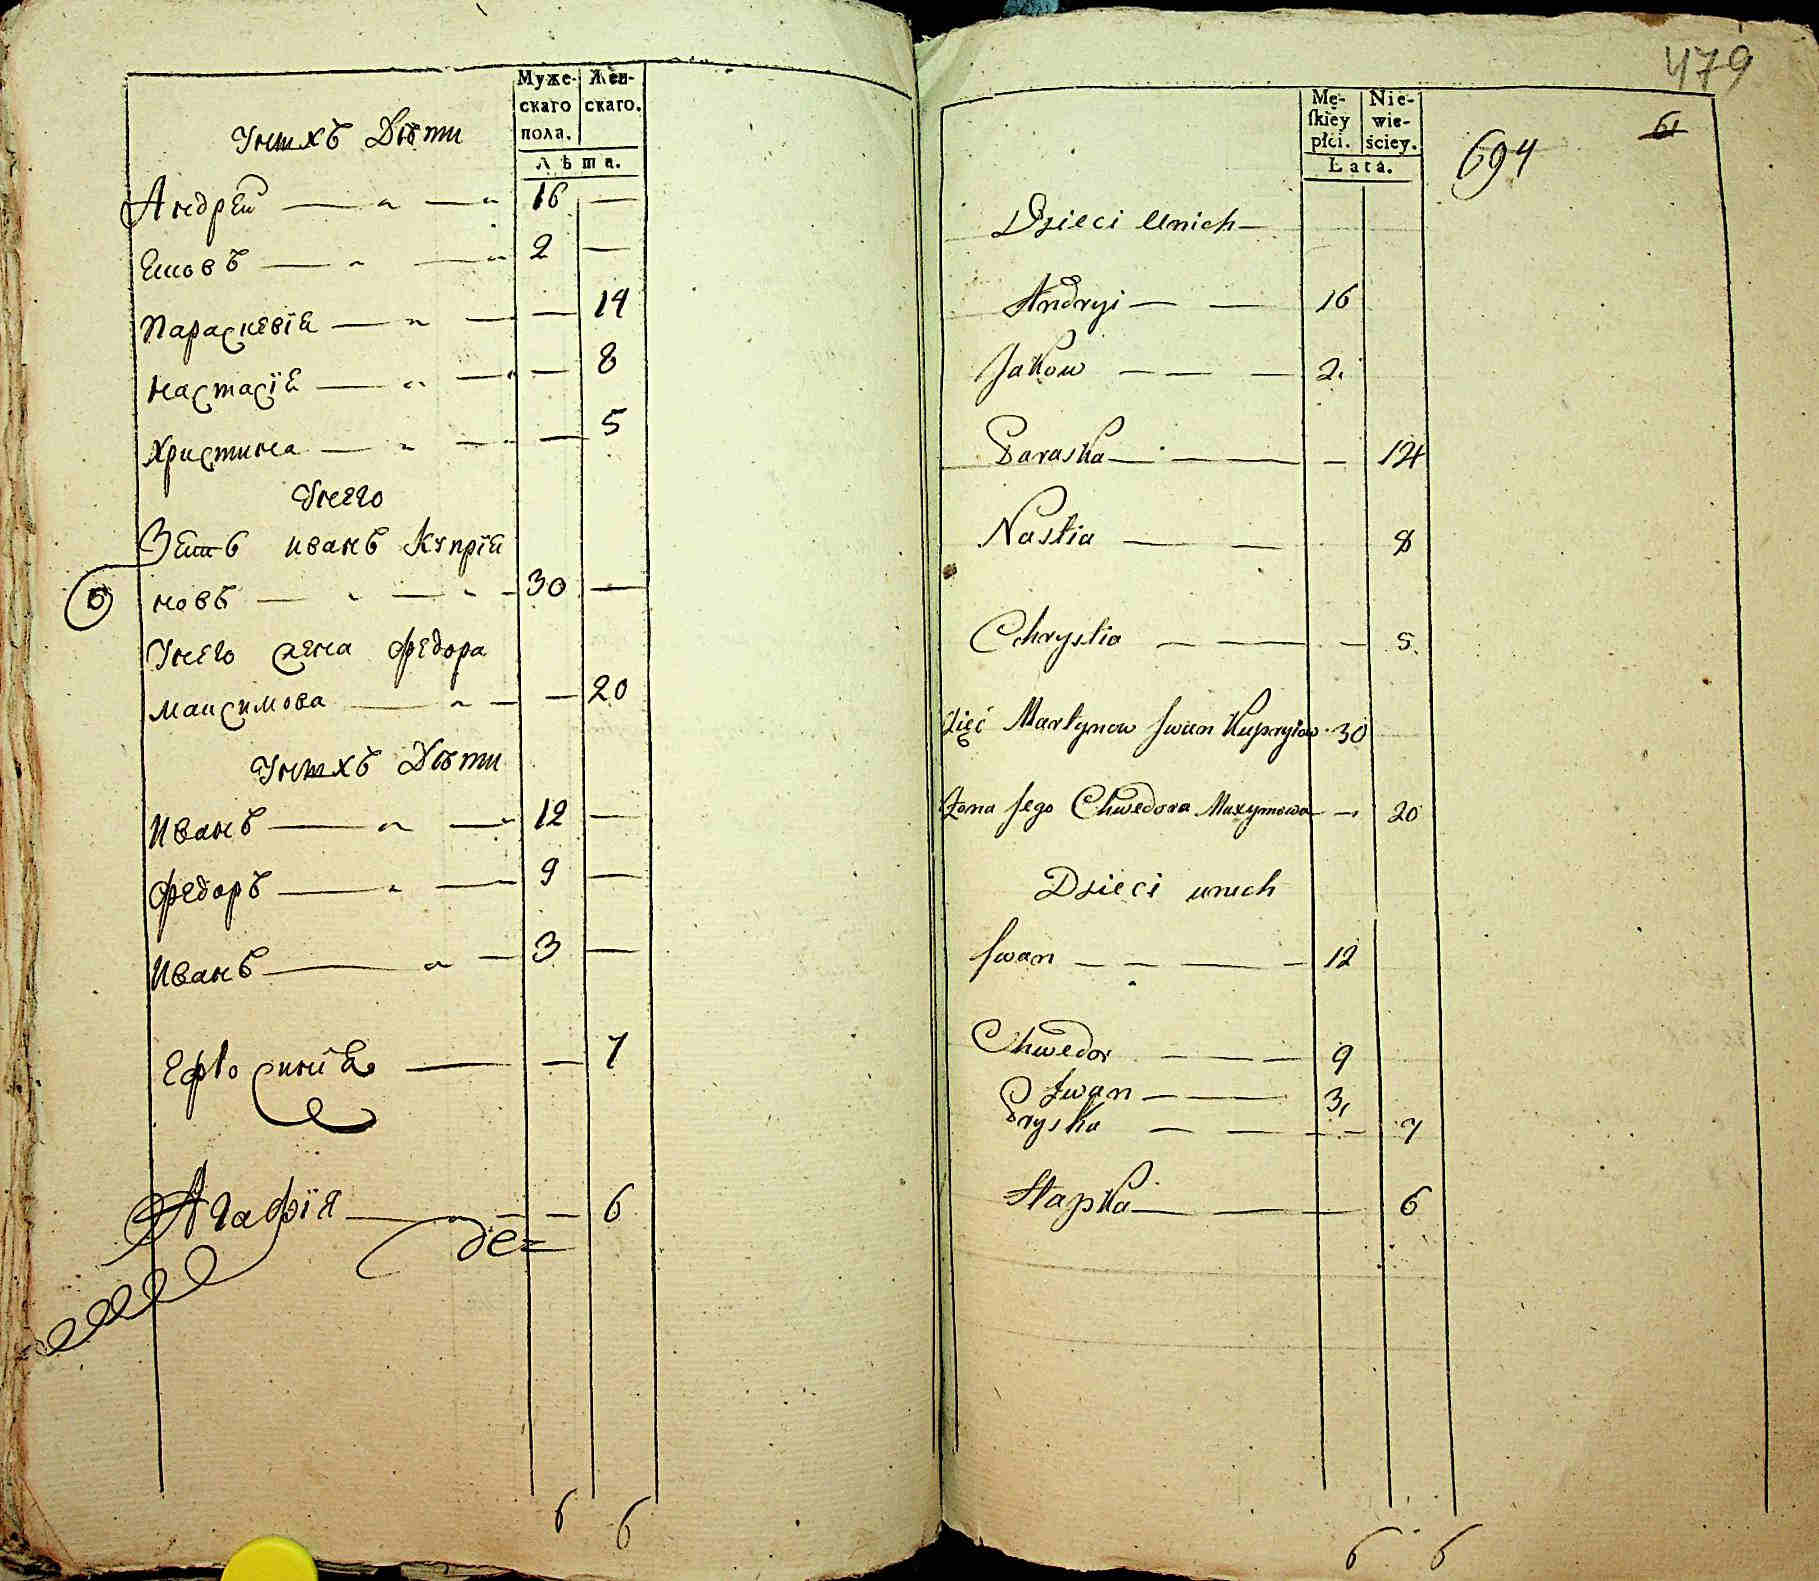 Муже- Жен-
скаго скаго.
пола.
Лѣта.
Унихъ Дѣти
Андрей 16 —
Яковъ 2 —
Параскевія — 14
Настасія — 8
Христина — 5
Унего
Зять иванъ Купрія
новъ 30 —
Унего жена федора
максимова — 20
Унихъ Дѣти
Иванъ 12 —
Федоръ 9 —
Иванъ 3 —
Ефросинія — 7
Агафія — 6
6 6
479
61
694
Mę- Nie-
skiey wie-
płci. sciey.
Lata.
Dzieci Unich —
Andryi — — 16
Jakow — — — 2.
Paraska — — — — 14
Nastia — — 8
Chrystia — — — 5.
Zięć Martynow Jwan Kupryiow 30
Żona Jego Chwedora Maxymowa — 20
Dzieci unich
Jwan — — — — 12
Chwedor — — — 9
Jwan — — — 3,
Pryska — — — — 7
Hapka — — — 6
6 6